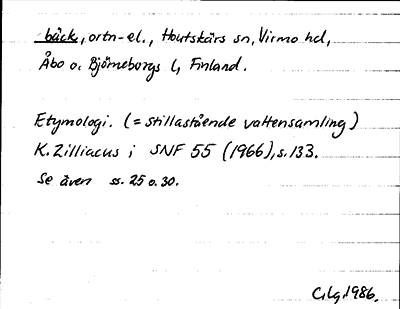 bäck, ortn-el., Houtskärs sn, Virmo hd,
Åbo o. Björneborgs l, Finland.
Etymologi. (= stillastående vattensamling)
K. Zilliacus i SNF 55 (1966), s. 133.
Se även ss. 25 o. 30.
C.Lg. 1986.